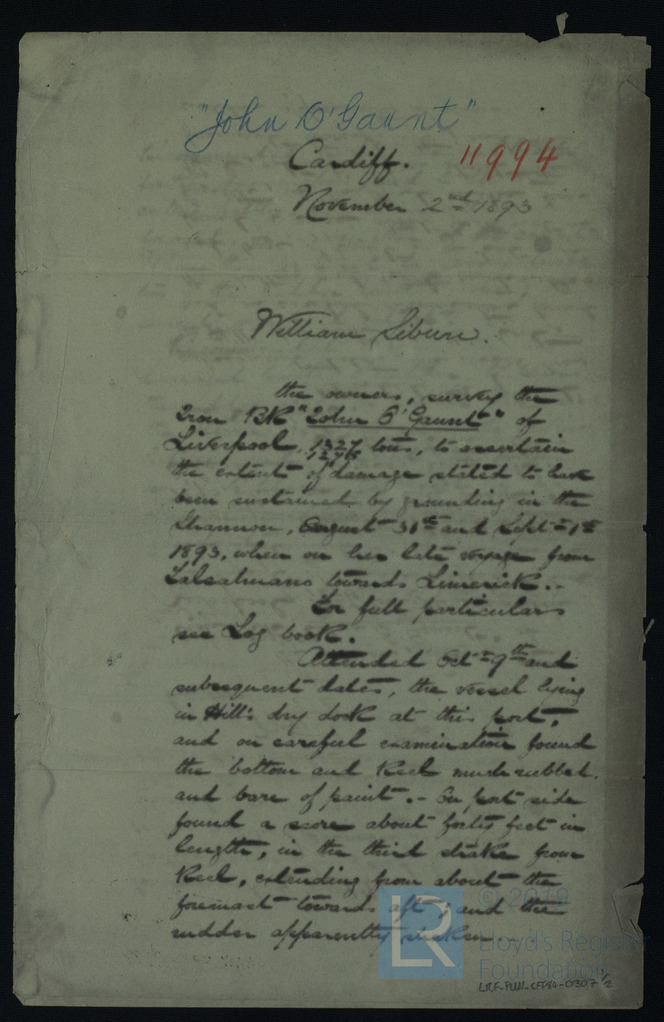 "John O'Gaunt"
Cardiff. 11994
November 2nd 1893
William
the owners, survey the
Iron BK "John O'Gaunt" of
Liverpool, 1327/1296 tons, to ascertain
the extent of damage stated to have
been sustained by grounding in the
Shannon, August 31st and Sept 1st
1893, when on her late voyage from
Talcahuano towards Limerick.-
For full particulars
see Log book.
Attended Oct 9th and
subsequent dates, the vessel lying
in Hill's dry dock at this port,
and on careful examination found
the bottom and Keel much rubbed,
and bare of paint.- On port side
found a score about forty feet in
length, in the third strake from
Keel, extending from about the
foremast towards aft, and the
rudder apparently
© 2019
LR
Lloyd's Register
Foundation
LRF-PUN-CFF84-0307 1/2